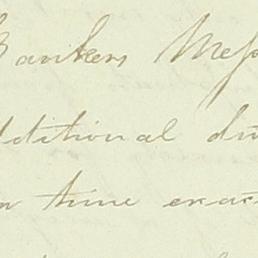 Bankers Mess
dditional du
n time exac